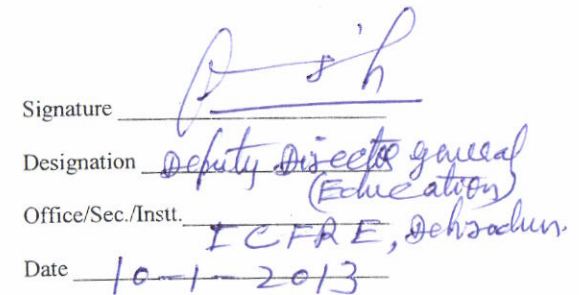 Signature
Designation Deputy Director general
(Education)
Office/Sec./Instt. ICFRE, Dehradun.
Date 10-1-2013